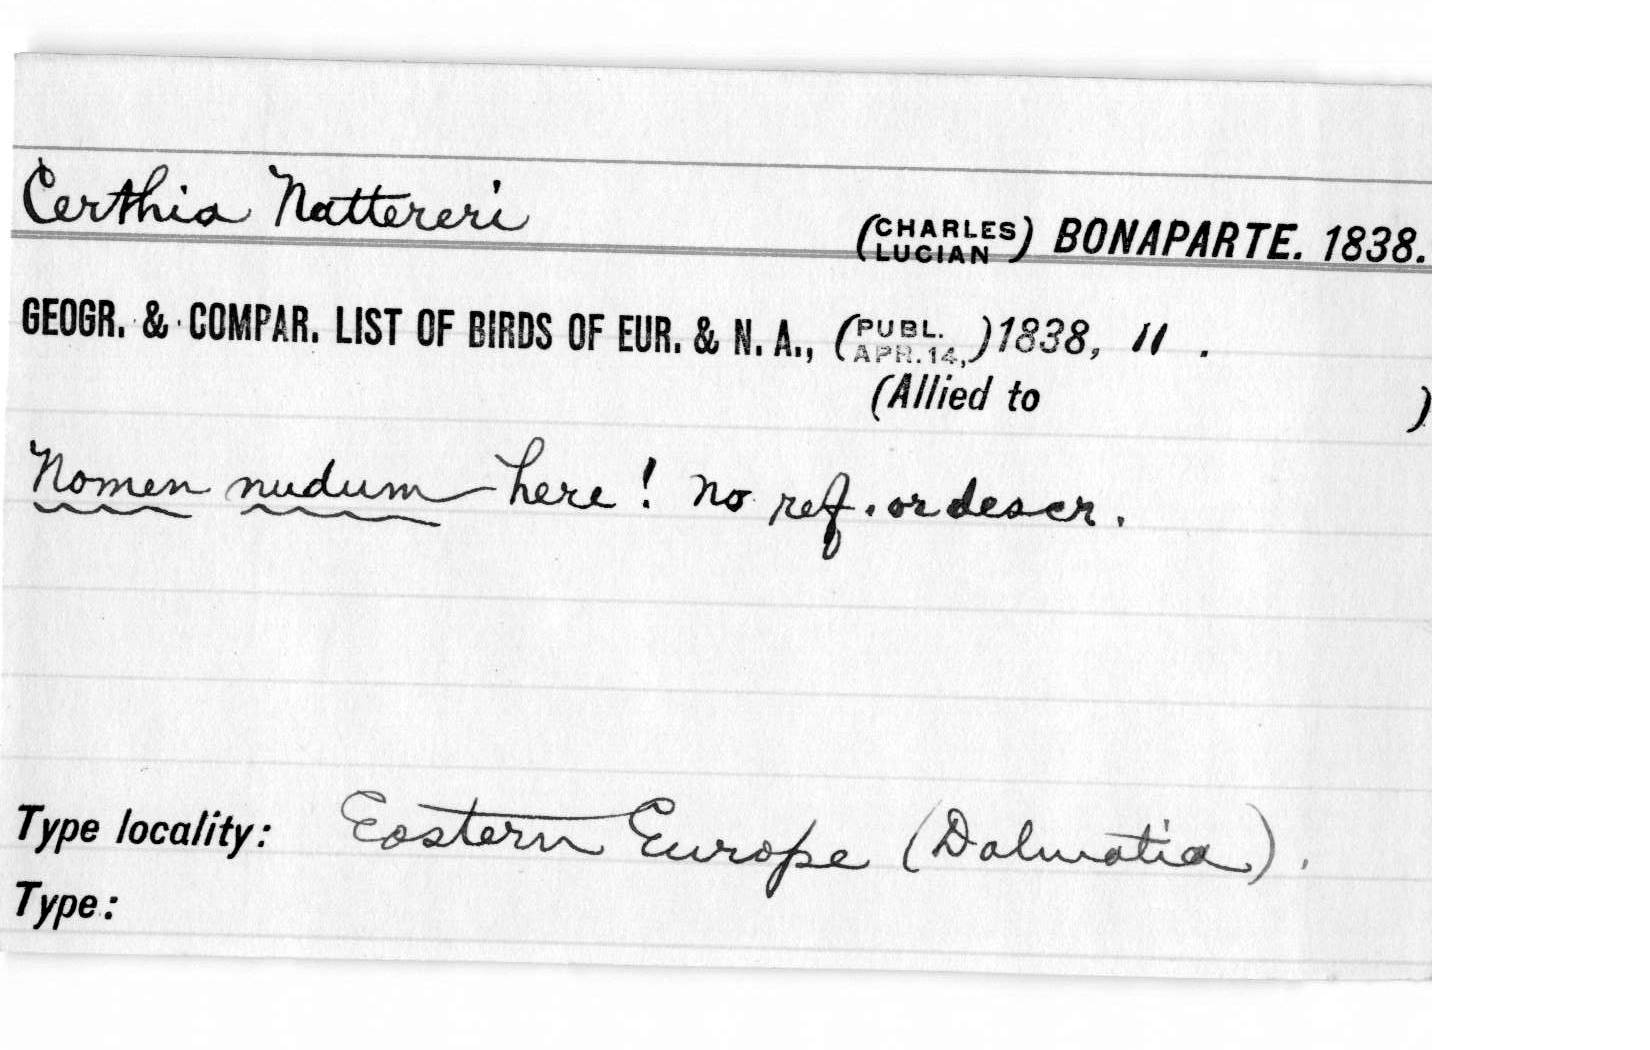 Certhia Nattereri (CHARLES LUCIAN) BONAPARTE. 1838.
GEOGR. & COMPAR. LIST OF BIRDS OF EUR. & N. A., (PUBL. APR. 14,) 1838, 11 .
(Allied to )
Nomen nudum here! no ref. or descr.
Type locality: Eastern Europe (Dalmatia).
Type: